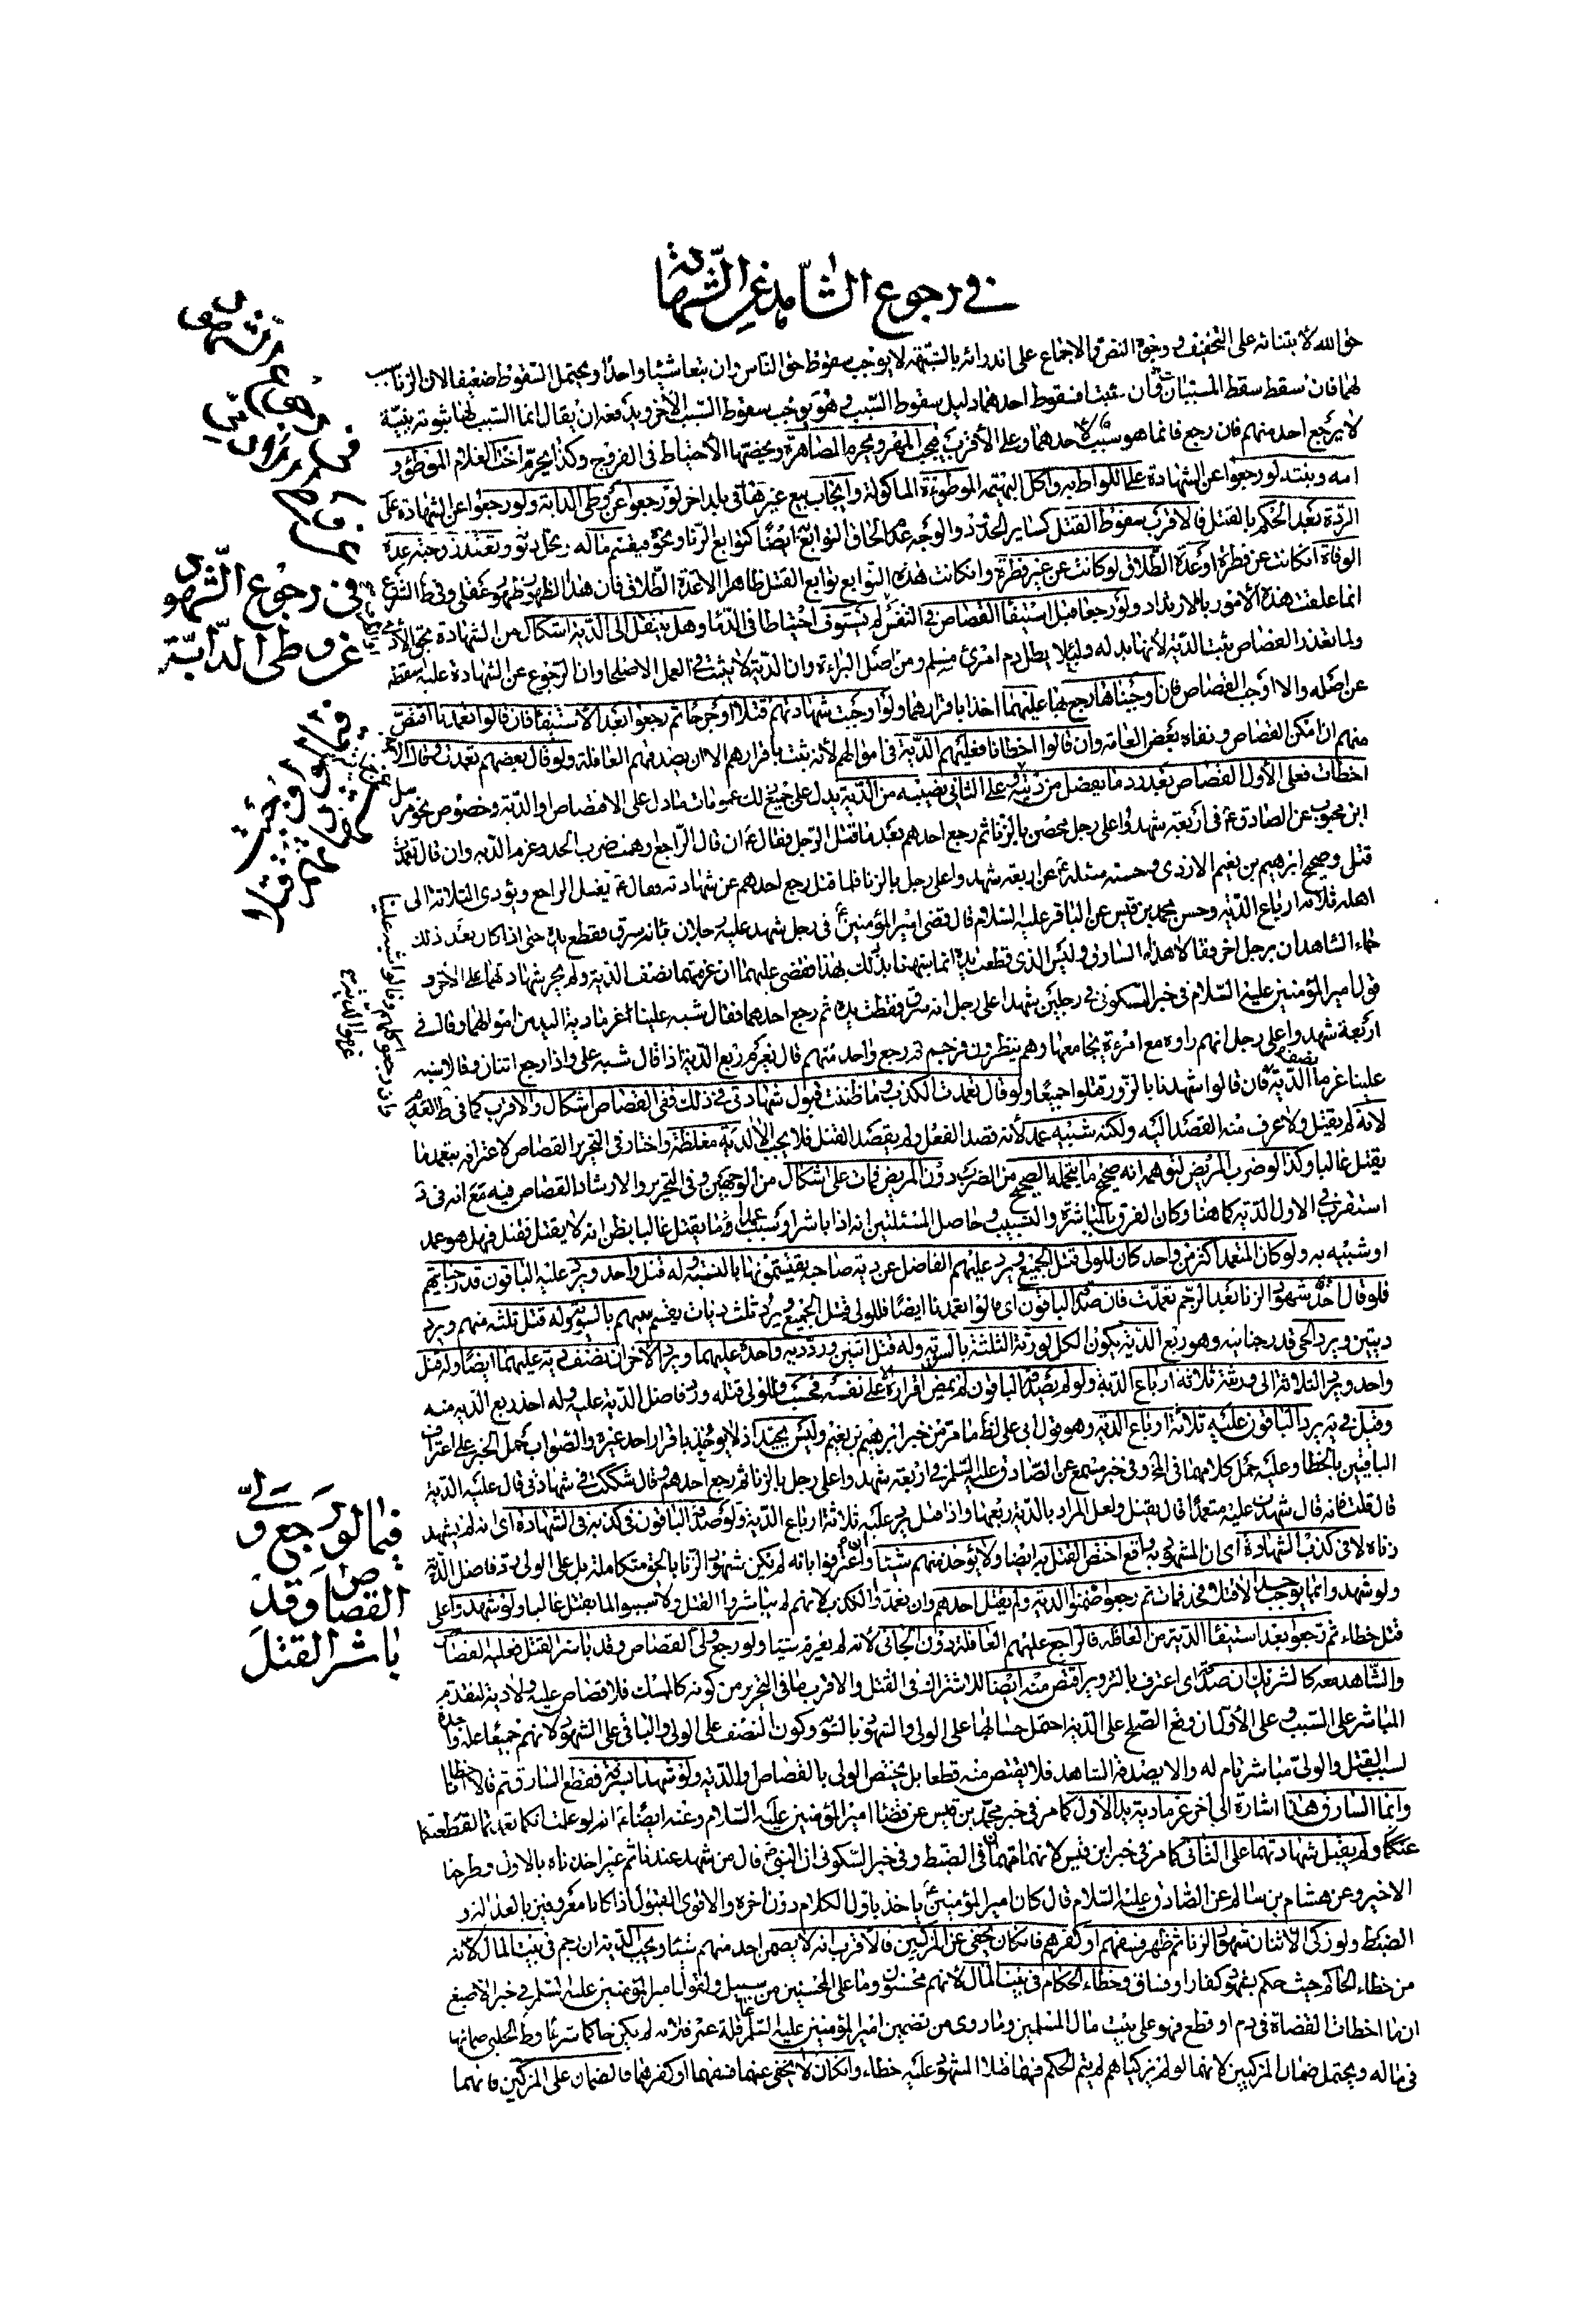 في رجوع الشاهد عن الشهادة
حق الله لابتنائه على التخفيف ووجود النص والاجماع على اندرائه بالشبهة لا يوجب سقوط حق الناس وان تبعا شيئا واحدا ويحتمل السقوط ضعيفا لان الزنا سبب
لهما فان سقط سقط المسببان وان ثبتا فسقوط احدهما دليل سقوط السبب وهو يوجب سقوط السبب الاخر ويدفعه ان يقال انما السبب لهما ثبوته ببينة
لا يرجع احد منهم فان رجع فانما هو سبب لاحدهما وعلى الاقرب فيجب المهر ويحرم المصاهرة ويخصها الاحتياط في الفروج وكذا يحرم اخت الغلام الموطوء و
امه وبنته لو رجعوا عن الشهادة على اللواط به واكل البهيمة الموطوءة الماكولة وايجاب بيع غيرها في بلد اخر لو رجعوا عن وطى الدابة ولو رجعوا عن الشهادة على
الردة بعد الحكم بالقتل فالاقرب سقوط القتل كساير الحدود والوجه عدم الحاق التوابع ايضا كتوابع الزنا ونحوه فيقسم ماله ويحل ديونه وتعتد زوجته عدة
الوفاة ان كانت عن فطرة او عدة الطلاق لو كانت عن غير فطرة وان كانت هذه التوابع توابع القتل ظاهرا الا عدة الطلاق فان هذا الظهور ظهور عقلي وفي ظ الشرع
انما علقت هذه الامور بالارتداد ولو رجعا قبل استيفاء القصاص في النفس لم يستوف احتياطا في الدماء وهل ينتقل الى الدية اشكال من الشهادة بحق الادمي
ولما تعذر القصاص يثبت الدية لانها بدل له ولئلا يطل دم امرئ مسلم ومن اصل البراءة وان الدية لا يثبت في العمد الا صلحا وان الرجوع عن الشهادة عليه مسقطة
عن اصله والا اوجب القصاص فان اوجبناها رجع بها عليهما اخذا باقرارهما ولو اوجبت شهادتهم قتلا او جرحا ثم رجعوا بعد الاستيفاء فان قالوا تعمدنا اقتص
منهم ان امكن القصاص ونفاه بعض العامة وان قالوا اخطأنا فعليهم الدية في اموالهم لانه ثبت باقرارهم الا ان يصدقهم العاقلة ولو قال بعضهم تعمدت وقال الاخر
اخطات فعلى الاول القصاص بعد رد ما يفضل من ديته وعلى الثاني نصيبه من الدية يدل على جميع ذلك عمومات ما دل على الاقتصاص او الدية وخصوص نحو مرسل
ابن محبوب عن الصادق ع في اربعة شهدوا على رجل محصن بالزنا ثم رجع احدهم بعد ما قتل الرجل فقال ع ان قال الراجع وهمت ضرب الحد وغرم الدية وان قال تعمدت
قتل وصحيح ابرهيم بن نعيم الازدي وحسنه سئله ع عن اربعة شهدوا على رجل بالزنا فلما قتل رجع احدهم عن شهادته فقال ع يقتل الراجع ويؤدى الثلاثة الى
اهله ثلاثة ارباع الدية وحسن محمد بن قيس عن الباقر عليه السلام قال قضى امير المؤمنين ع في رجل شهد عليه رجلان بانه سرق فقطع يده حتى اذا كان بعد ذلك
جاء الشاهدان برجل اخر فقالا هذا السارق وليس الذي قطعت يده انما شبهنا ذلك بهذا فقضى عليهما ان غرمهما نصف الدية ولم يجز شهادتهما على الاخر و
قول امير المؤمنين عليه السلام في خبر السكوني في رجلين شهدا على رجل انه سرق فقطت يده ثم رجع احدهما فقال شبه علينا غرما دية اليد من اموالهما وقال في
اربعة شهدوا على رجل انهم راوه مع امرءة يجامعها وهم ينظرون فرجم ثم رجع واحد منهم قال يغرم ربع الدية اذا قال شبه على واذا رجع اثنان وقالا شبه
علينا غرما نصف الدية فان قالوا شهدنا بالزور قتلوا جميعا ولو قال تعمدت الكذب وما ظننت قبول شهادتي في ذلك ففي القصاص اشكال والاقرب كما في ط العدم
لانه لم يقتل ولا عرف منه القصد اليه ولكنه شبيه عمد لانه قصد الفعل ولم يقصد القتل فلا يجب الا الدية مغلظة واختار في التحرير القصاص لاعترافه بتعمد ما
يقتل غالبا وكذا لو ضرب المريض لتوهمه انه صحيح ما يتحمله الصحيح من الضرب دون المريض فمات على اشكال من الوجهين وفي التحرير والارشاد القصاص فيه مع انه في د
استقرب في الاول الدية كما هنا وكان الفرق بالمباشرة والتسبيب وحاصل المسئلتين انه اذا باشر او سبب عمدا ما يقتل غالبا يظن انه لا يقتل فقتل فهل هو عمد
او شبيه به ولو كان المتعمد اكثر من واحد كان للولي قتل الجميع ويرد عليهم الفاضل عن دية صاحبه يقتسمونها بالنسبة وله قتل واحد ويرد عليه الباقون قدر جنايتهم
فلو قال احد شهود الزنا بعد الرجم تعمدت فان صدقه الباقون اى قالوا تعمدنا ايضا فللولي قتل الجميع ويرد ثلث ديات يقسم بينهم بالسوية وله قتل ثلثة منهم ويرد
ديتين ويرد الحى قدر جنايته وهو ربع الدية يكون الكل لورثة الثلثة بالسوية وله قتل اثنين ورد دية واحدة عليهما ويرد الاخران نصف دية عليهما ايضا وله قتل
واحد ويرد الثلاثة الى ورثته ثلاثة ارباع الدية ولو لم يصدقه الباقون لم يمض اقراره الا على نفسه فحسب وللولى قتله ورد فاضل الدية عليه وله اخذ ربع الدية منه
وقيل في يه يرد الباقون عليه ثلاثة ارباع الدية وهو قول ابى على لظ ما مر من خبر ابرهيم بن نعيم وليس بجيد اذ لا يؤخذ باقرار احد غيره والصواب حمل الخبر على اعتراف
الباقين بالخطا وعليه حمل كلامهما في المخ وفي خبر مسمع عن الصادق عليه السلم في اربعة شهدوا على رجل بالزنا ثم رجع احدهم وقال شككت في شهادتي قال عليه الدية
قال قلت فانه قال شهدت عليه متعمدا قال يقتل ولعل المراد بالدية ربعها واذا قتل يرد عليه ثلاثة ارباع الدية ولو صدقه الباقون في كذبه في الشهادة اى انه لم يشهد
زناه لا في كذب الشهادة اى ان المشهود به واقع اختص القتل به ايضا ولا يؤخذ منهم شيئا واعترفوا بانه لم يكن شهود الزنا بالحق متكاملة بل على الولى رد فاضل الدية
ولو شهدوا بما يوجب الحد لا القتل فحد فمات ثم رجعوا ضمنوا الدية ولم يقتل احدهم وان تعمدوا الكذب لانهم لم يباشروا القتل ولا تسببوا لما يقتل غالبا ولو شهدوا على
قتل خطاء ثم رجعوا بعد استيفاء الدية من العاقلة فالراجع عليهم العاقلة دون الجاني لانه لم يغرم شيئا ولو رجع ولى القصاص وقد باشر القتل فعليه القصاص
والشاهد معه كالشريك ان صدقه اى اعترف بالتزوير اقتص منه ايضا للاشتراك في القتل والاقرب ما في التحرير من كونه كالممسك فلا قصاص عليه ولا دية لتقدم
المباشر على السبب وعلى الاول فان وقع الصلح على الدية احتمل حسابها على الولى والشهود بالسوية وكون النصف على الولى والباقي على الشهود لانهم جميعا علة واحدة
لسبب القتل والولى مباشر تام له والا يصدقه الشاهد فلا يقتص منه قطعا بل يختص الولى بالقصاص والدية ولو شهدا بسرقة فقطع السارق ثم قالا اخطانا
وانما السارق هذا اشارة الى اخر غرما دية يد الاول كما مر في خبر محمد بن قيس عن قضاء امير المؤمنين عليه السلام وعنه ايضا ع انه لو علمت انكما تعمدتما لقطعتكما
عنكما ولم يقبل شهادتهما على الثاني كما مر في خبر ابن قيس لانهما متهمان في الضبط وفي خبر السكوني ان النبي ص قال من شهد عندنا ثم غير اخذناه بالاول وطرحنا
الاخير وعن هشام بن سالم عن الصادق عليه السلام قال كان امير المؤمنين ع ياخذ باول الكلام دون اخره والاقوى القبول اذا كانا معروفين بالعدالة و
الضبط ولو زكى الاثنان شهود الزنا ثم ظهر فسقهم او كفرهم فان كان يخفى عن المزكيين فالاقرب انه لا يضمن احد منهم شيئا ويجب الدية ان رجم في بيت المال لانه
من خطاء الحاكم حيث حكم بشهود كفار او فساق وخطاء الحكام في بيت المال لانهم محسنون وما على المحسنين من سبيل ولقول امير المؤمنين عليه السلم في خبر الاصبغ
ان ما اخطات القضاة في دم او قطع فهو على بيت مال المسلمين وما روى من تضمين امير المؤمنين عليه السلم فلانه لم يكن حاكما شرعا وط الحلبي ضمانها
في ماله ويحتمل ضمان المزكيين لانهما لو لم يزكياهم لم يتم الحكم فهما قتلا المشهود عليه خطاء وان كان لا يخفى عنهما فسقهما او كفرهما فالضمان على المزكين فانهما
في رجوع الشهود
عن وطى الدابة
فيما لو اوجبت
شهادتهم قتلا
وان رجعوا كلهم وقالوا شبه علينا
غرموا الدية
فيما لو رجع ولى
القصاص وقد
باشر القتل